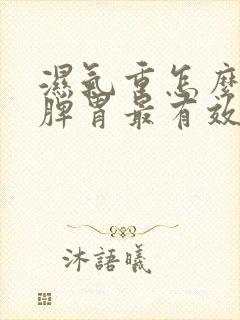 濕氣重怎麼
脾胃最有效
沐語曦